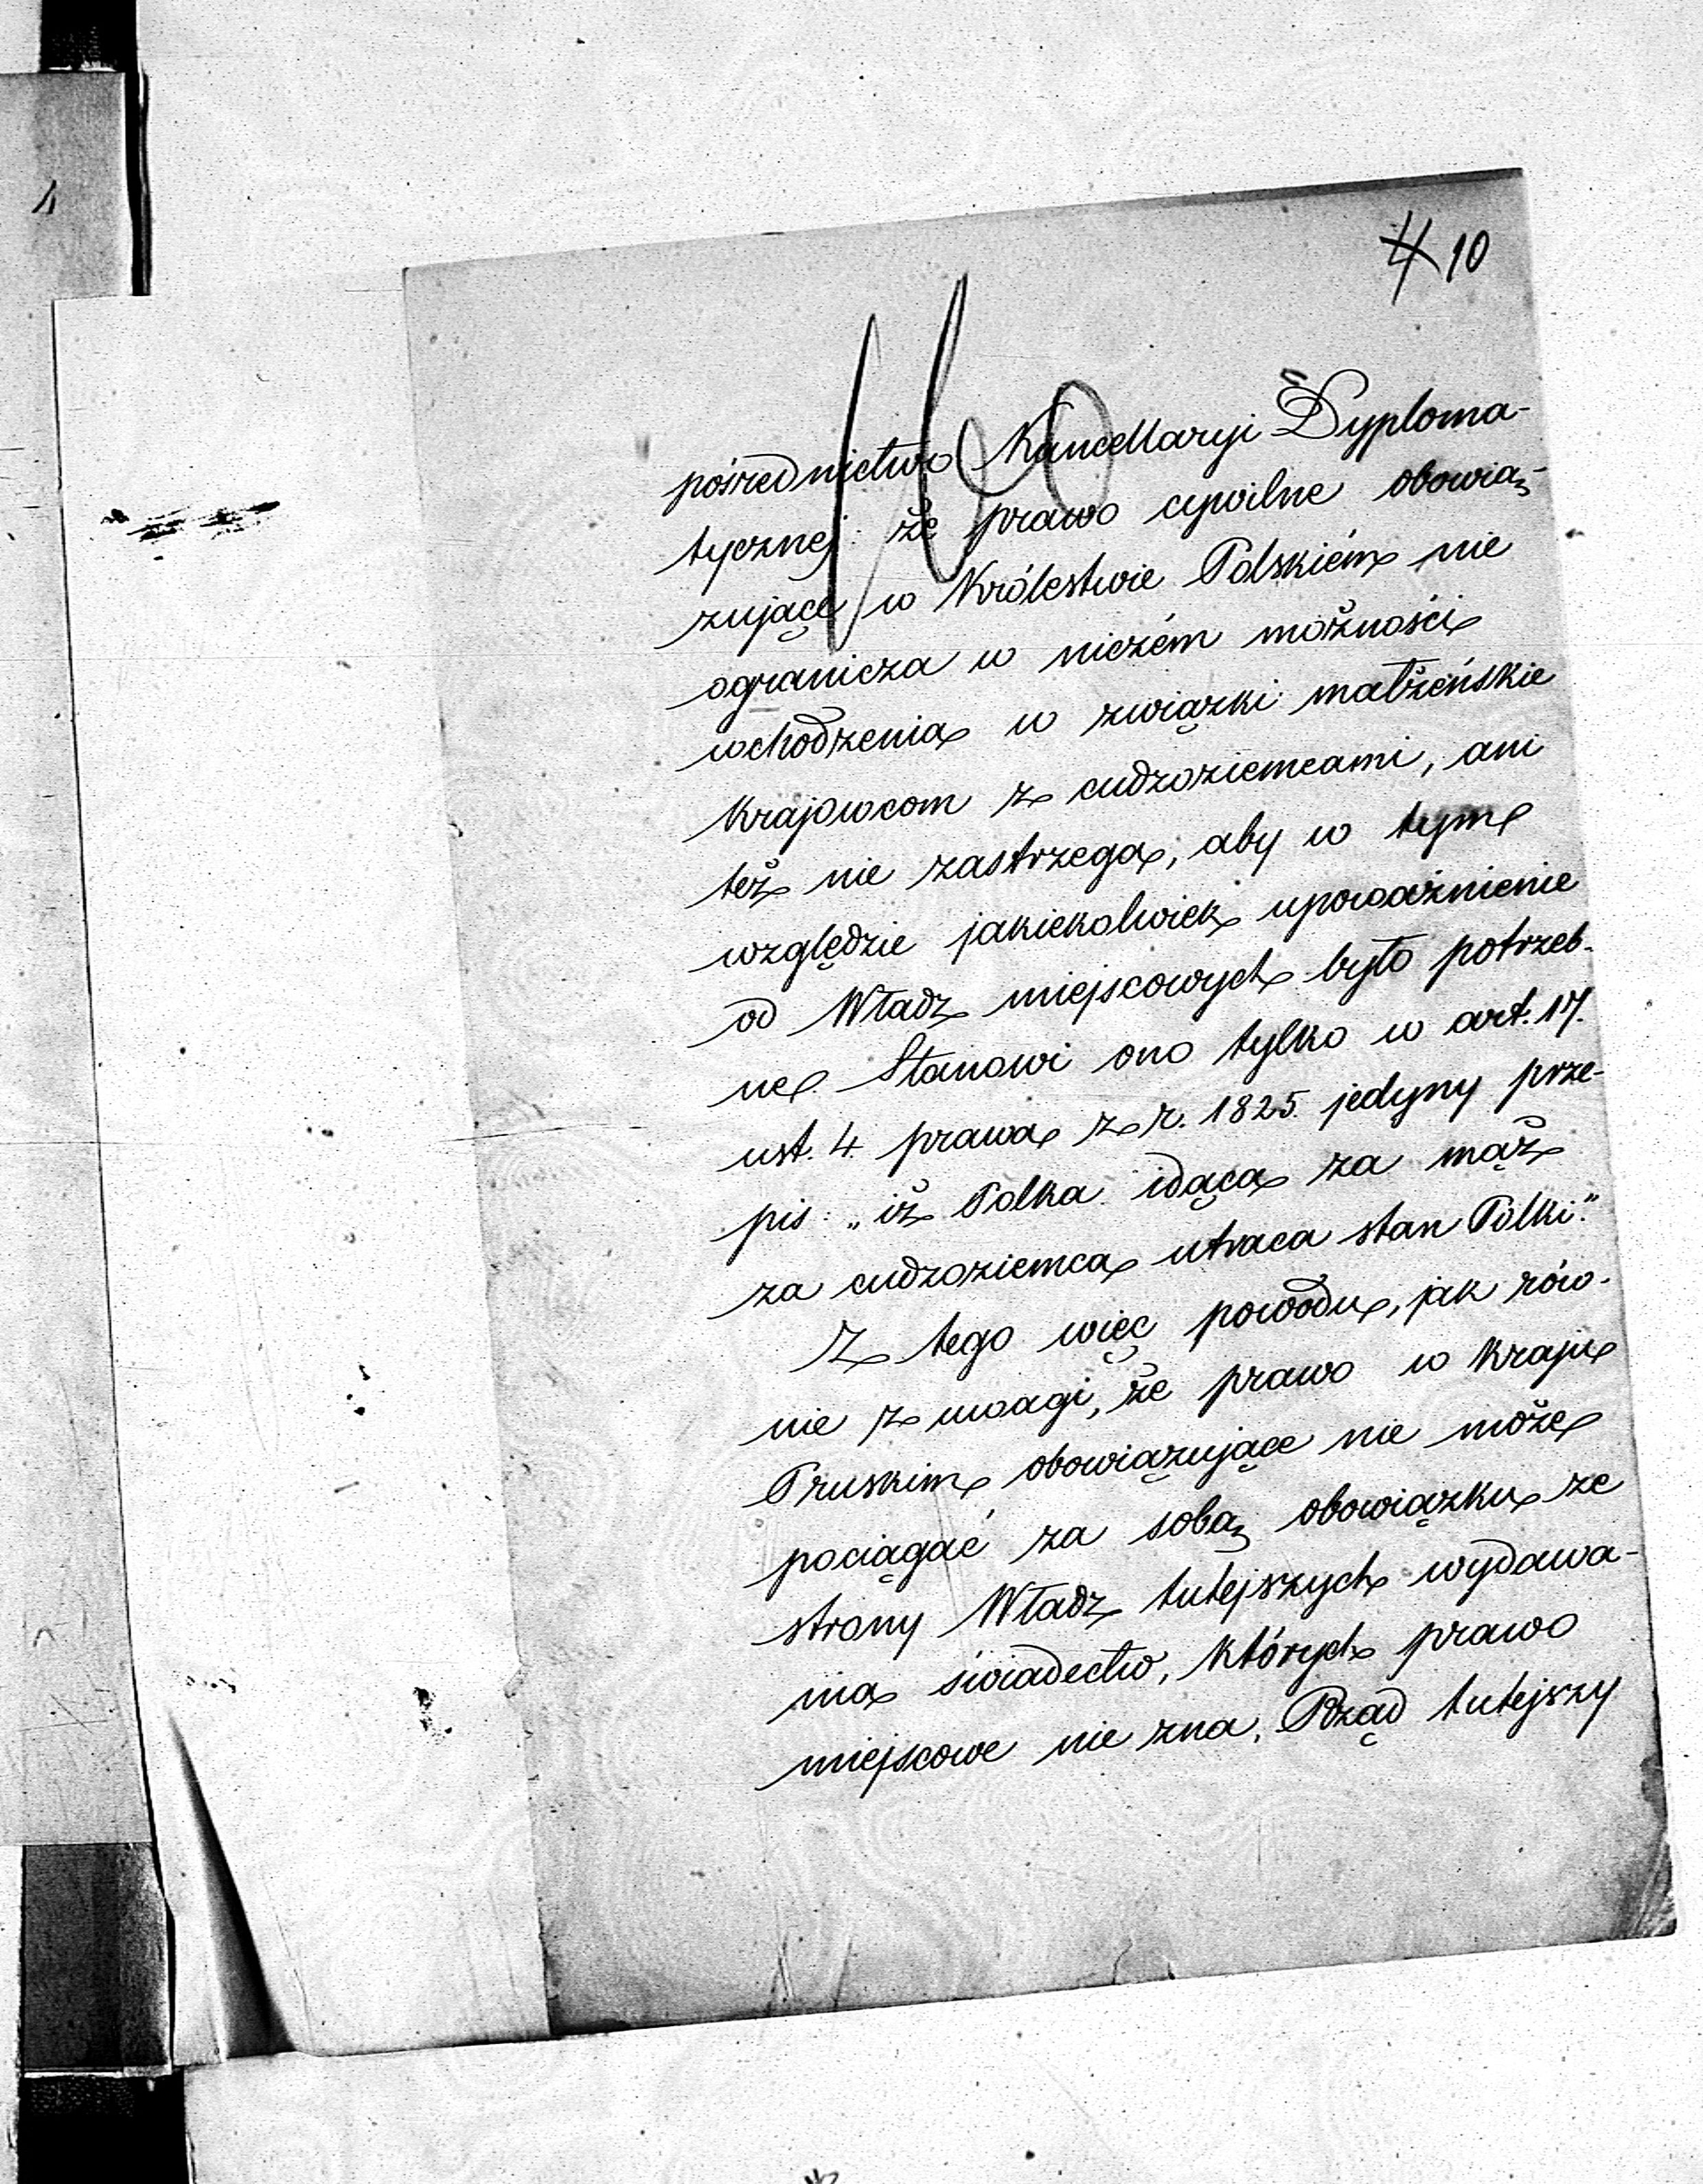 4 10
pośrednictwo Kancellaryi Dyploma-
tycznej: że prawo cywilne obowią-
zujące w Królestwie Polskiém nie
ogranicza w niczém możności
wchodzenia w związki małżeńskie
Krajowcom z cudzoziemcami, ani
też nie zastrzega, aby w tym
względzie jakiekolwiek upoważnienie
od Władz miejscowych było potrzeb-
ne. Stanowi ono tylko w art. 17.
ust. 4. prawa z r. 1825. jedyny prze-
pis: „iż Polka idąca za mąż
za cudzoziemca utraca stan Polki."
Z tego więc powodu, jak rów-
nie z uwagi, że prawo w Kraju
Pruskim obowiązujące nie może
pociągać za sobą obowiązku ze
strony Władz tutejszych wydawa-
nia świadectw, których prawo
miejscowe nie zna, Rząd tutejszy